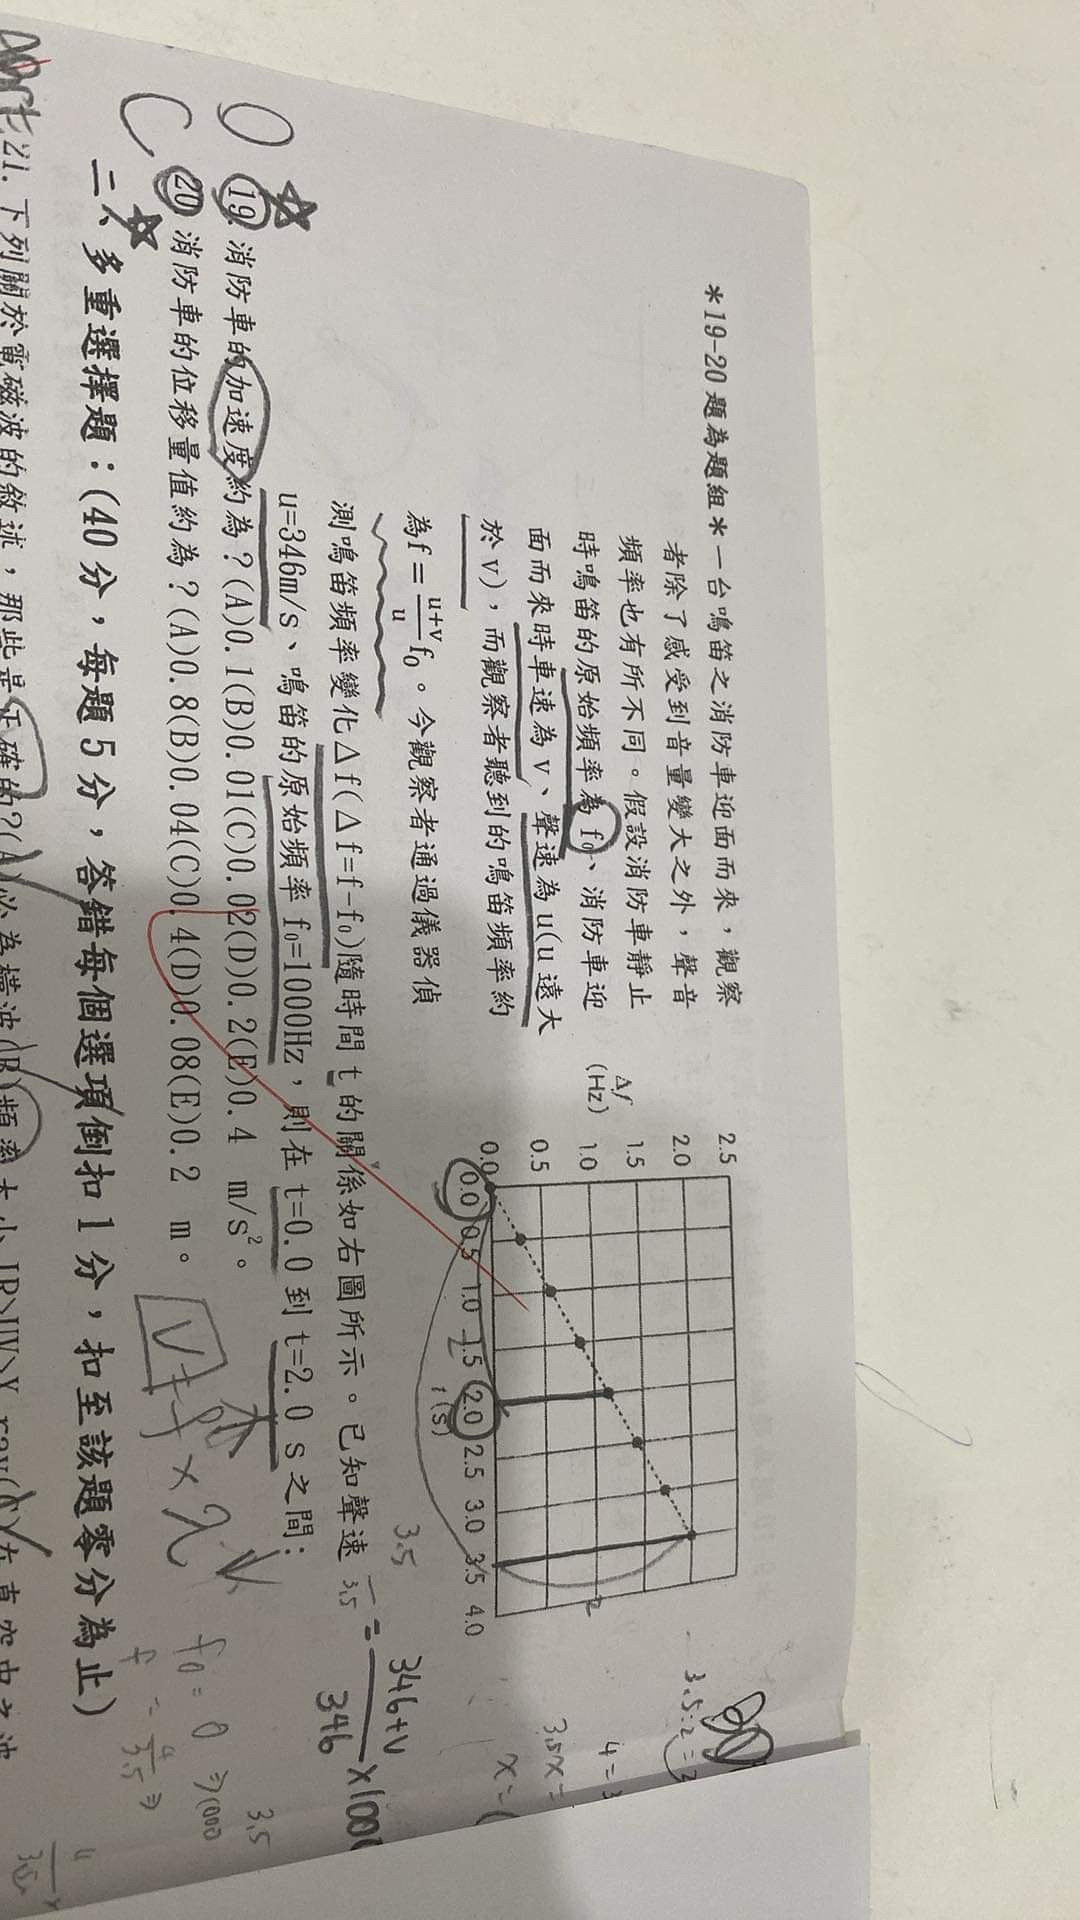 *19-20題為題組*一台鳴笛之消防車迎面而來，觀察
者除了感受到音量變大之外，聲音
頻率也有所不同。假設消防車靜止
時鳴笛的原始頻率為f₀、消防車迎
面而來時車速為v、聲速為u(u遠大
於v)，而觀察者聽到的鳴笛頻率約
為f=u+v/u f₀。今觀察者通過儀器偵
測鳴笛頻率變化Δf(Δf=f-f₀)隨時間t的關係如右圖所示。已知聲速
u=346m/s、鳴笛的原始頻率f₀=1000Hz，則在t=0.0到t=2.0 s之間:
Δf
(Hz)
2.5
2.0
1.5
1.0
0.5
0.0
0.0 0.5 1.0 1.5 2.0 2.5 3.0 3.5 4.0
t(s)
O 19. 消防車的加速度約為？(A)0.1(B)0.01(C)0.02(D)0.2(E)0.4 m/s²。
C 20 消防車的位移量值約為？(A)0.8(B)0.04(C)0.4(D)0.08(E)0.2 m。
二、多重選擇題：(40分，每題5分，答錯每個選項倒扣1分，扣至該題零分為止)
21. 下列關於電磁波的敘述，那些是正確的?(A)必為橫波(B)頻率大小IR>UV>X
v=f×λ
3.5
3.5
346+v
346
2
3.5x=
f₀=0 ⇒1000
3.5